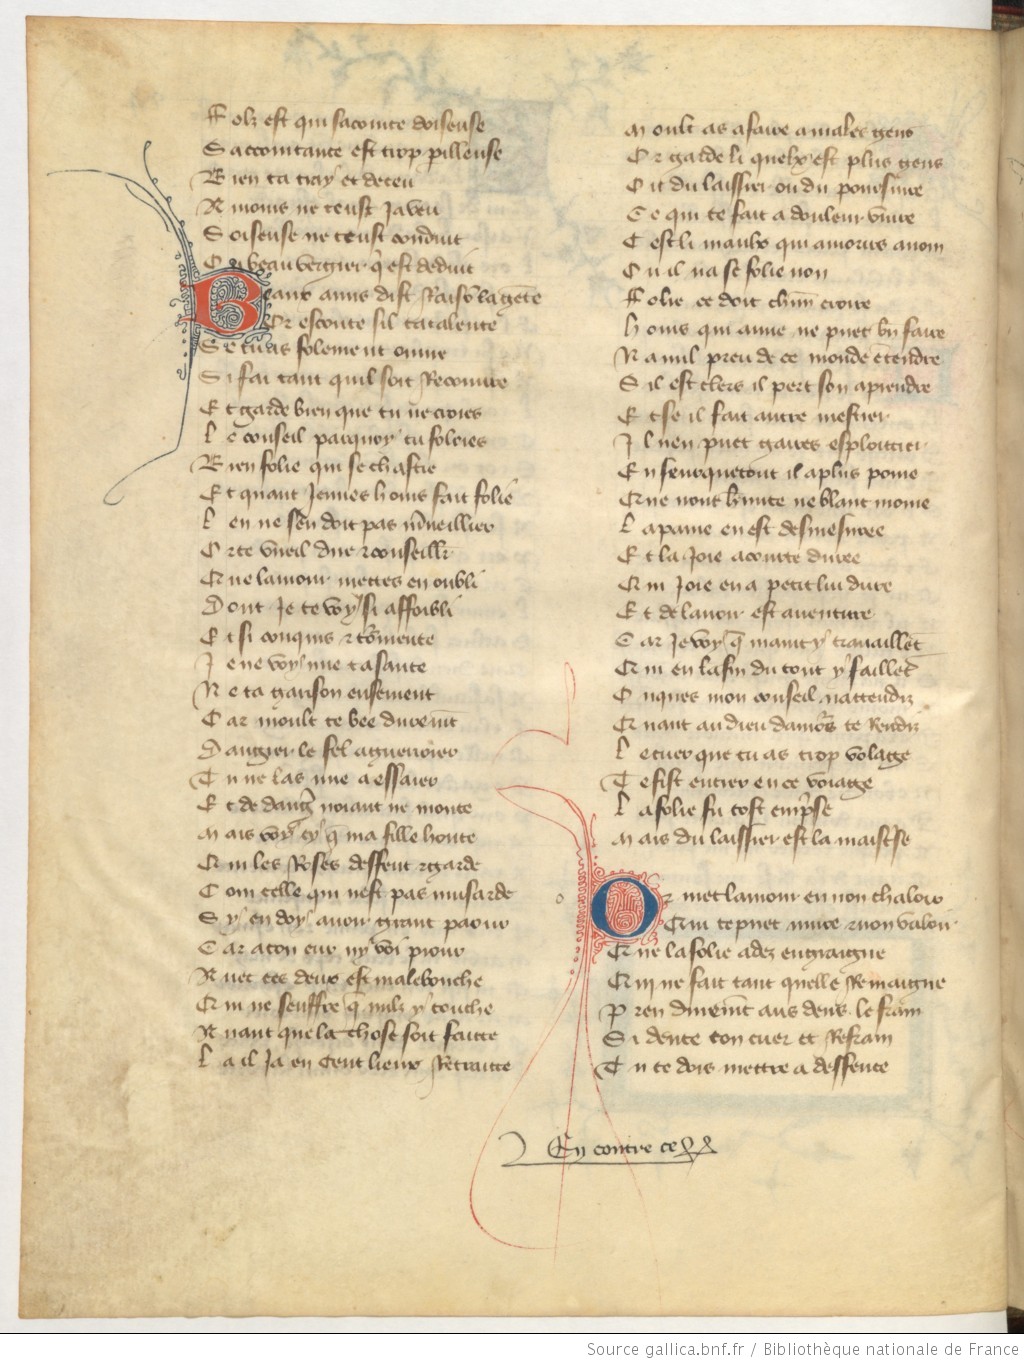 Folz est qui sacointe doiseuse
Saccointance est trop pilleuse
Bien ta tray et deceu
Amoins ne teust Ja veu
Soiseuse ne teust conduit
Ou beau vergier q̃ est deduit
Beaux amis dist Raisõ la gẽte
Or escoute sil tatalente
Se tu as folement ouure
Si fai tant quil soit Recouure
Et garde bien que tu ne croies
Le conseil parquoy tu foloies
Bien folie qui se chastie
Et quant Jennes homs fait folie
Len ne sen doit pas m̃ueillier
Or te vueil dire 7 conseillr̃
Que lamour mettes en oubli
Dont Je te voy si affoibli
Et si conquis 7 tõmente
Je ne voy mie ta sante
Ne ta garison ensement
Car moult te bee
Dangier le fel aguerroier
Tu ne las mie a essaier
Et de dang̃ noiant ne monte
Mais voy cy q̃ ma fille honte
Qui les Roses deffent 7 garde
Com celle qui nest pas musarde
Sy en doy auoir grant paour
Car a ton eur ny voi piour
Auec ces deux est malebouche
Qui ne seuffre q̃ nulz y touche
Auant que la chose soit faitte
La il Ja en cent lieux Retraitte
Moult as afaire a males gens
Or garde li quelx est plus gens
Ou du laissier ou du poursiure
Ce qui te fait a douleur viure
Cest li maulx qui amours a nom
Ou il na se folie non
Folie ce doit chm̃ croire
Homs qui aime ne puet bñ faire
Na nul preu de ce monde ẽtendre
Sil est clers il pert son aprendre
Et se il fait autre mestier
Il nen puet gaires esploittier
En seurquetout il a plus poine
Que nont hermite ne blanc moine
La paine en est desmesuree
Et la Joie a courte duree
Qui Joie en a petit lui dure
Et de lauoir est auenture
Car Je voy q̃ maint y trauaillẽt
Qui en la fin du tout y faillẽt
Onques mon conseil nattendiz
Quant au dieu damo's te Rendiz
Le cuer que tu as trop volage
Te fist entrer en ce voiage
La folie fu tost emp̃se
Mais du laissier est la maistrise
Or met lamour en non chaloir
Qui te puet nuire 7 non valoir
Que la folie adez engraigne
Qui ne fait tant quelle Remaigne
Pren aus dens le frain
Si dente ton cuer et Refrain
Tu te dois mettre a deffence
En contre ce